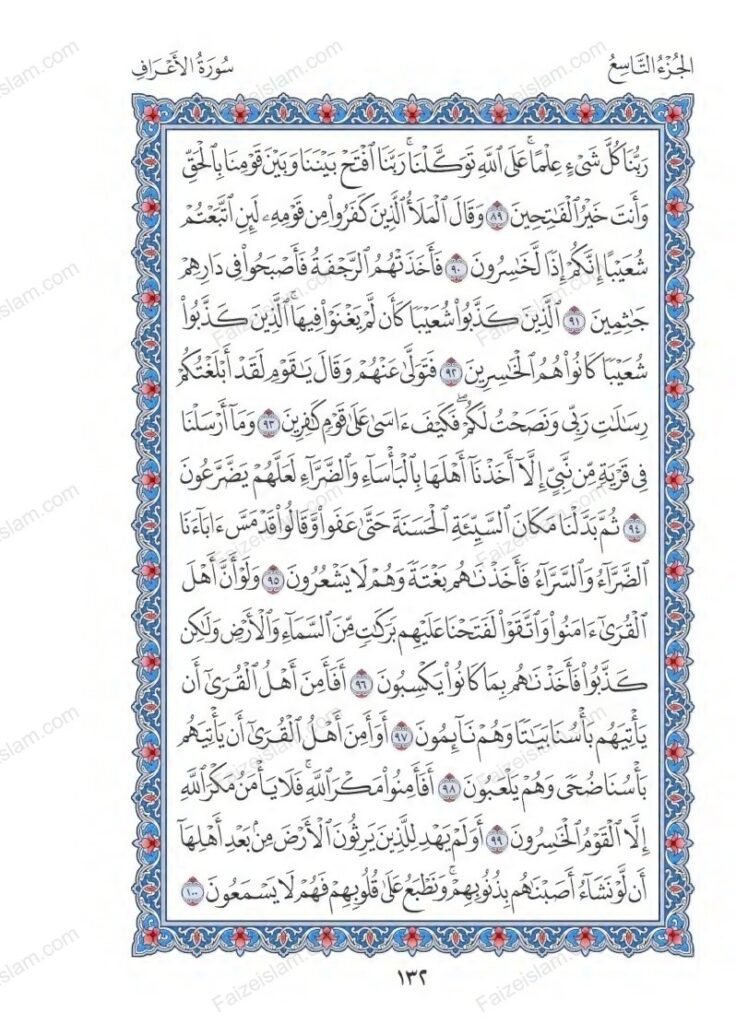 الجُزْءُ التَّاسِعُ
سُورَةُ الأَعْرَافِ
رَبُّنَا كُلَّ شَىْءٍ عِلْمًا ۚ عَلَى ٱللَّهِ تَوَكَّلْنَا ۚ رَبَّنَا ٱفْتَحْ بَيْنَنَا وَبَيْنَ قَوْمِنَا بِٱلْحَقِّ
وَأَنتَ خَيْرُ ٱلْفَٰتِحِينَ ٨٩ وَقَالَ ٱلْمَلَأُ ٱلَّذِينَ كَفَرُوا۟ مِن قَوْمِهِۦ لَئِنِ ٱتَّبَعْتُمْ
شُعَيْبًا إِنَّكُمْ إِذًا لَّخَٰسِرُونَ ٩٠ فَأَخَذَتْهُمُ ٱلرَّجْفَةُ فَأَصْبَحُوا۟ فِى دَارِهِمْ
جَٰثِمِينَ ٩١ ٱلَّذِينَ كَذَّبُوا۟ شُعَيْبًا كَأَن لَّمْ يَغْنَوْا۟ فِيهَا ۚ ٱلَّذِينَ كَذَّبُوا۟
شُعَيْبًا كَانُوا۟ هُمُ ٱلْخَٰسِرِينَ ٩٢ فَتَوَلَّىٰ عَنْهُمْ وَقَالَ يَٰقَوْمِ لَقَدْ أَبْلَغْتُكُمْ
رِسَٰلَٰتِ رَبِّى وَنَصَحْتُ لَكُمْ ۖ فَكَيْفَ ءَاسَىٰ عَلَىٰ قَوْمٍ كَٰفِرِينَ ٩٣ وَمَآ أَرْسَلْنَا
فِى قَرْيَةٍ مِّن نَّبِىٍّ إِلَّآ أَخَذْنَآ أَهْلَهَا بِٱلْبَأْسَآءِ وَٱلضَّرَّآءِ لَعَلَّهُمْ يَضَّرَّعُونَ
٩٤ ثُمَّ بَدَّلْنَا مَكَانَ ٱلسَّيِّئَةِ ٱلْحَسَنَةَ حَتَّىٰ عَفَوا۟ وَّقَالُوا۟ قَدْ مَسَّ ءَابَآءَنَا
ٱلضَّرَّآءُ وَٱلسَّرَّآءُ فَأَخَذْنَٰهُم بَغْتَةً وَهُمْ لَا يَشْعُرُونَ ٩٥ وَلَوْ أَنَّ أَهْلَ
ٱلْقُرَىٰٓ ءَامَنُوا۟ وَٱتَّقَوْا۟ لَفَتَحْنَا عَلَيْهِم بَرَكَٰتٍ مِّنَ ٱلسَّمَآءِ وَٱلْأَرْضِ وَلَٰكِن
كَذَّبُوا۟ فَأَخَذْنَٰهُم بِمَا كَانُوا۟ يَكْسِبُونَ ٩٦ أَفَأَمِنَ أَهْلُ ٱلْقُرَىٰٓ أَن
يَأْتِيَهُم بَأْسُنَا بَيَٰتًا وَهُمْ نَآئِمُونَ ٩٧ أَوَأَمِنَ أَهْلُ ٱلْقُرَىٰٓ أَن يَأْتِيَهُم
بَأْسُنَا ضُحًى وَهُمْ يَلْعَبُونَ ٩٨ أَفَأَمِنُوا۟ مَكْرَ ٱللَّهِ ۚ فَلَا يَأْمَنُ مَكْرَ ٱللَّهِ
إِلَّا ٱلْقَوْمُ ٱلْخَٰسِرُونَ ٩٩ أَوَلَمْ يَهْدِ لِلَّذِينَ يَرِثُونَ ٱلْأَرْضَ مِنۢ بَعْدِ أَهْلِهَآ
أَن لَّوْ نَشَآءُ أَصَبْنَٰهُم بِذُنُوبِهِمْ ۚ وَنَطْبَعُ عَلَىٰ قُلُوبِهِمْ فَهُمْ لَا يَسْمَعُونَ ١٠٠
١٣٢
Faizeislam.com